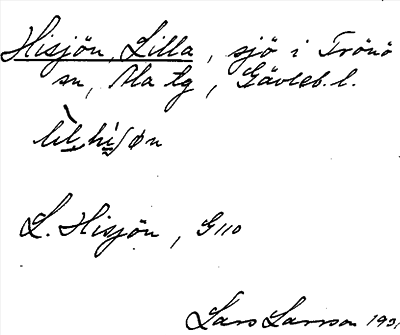 Hisjön, Lilla, sjö i Trönö
sn, Ala tg, Gävleb. l.
lil, hiʃøn
L. Hisjön, G110
Lars Larsson 193